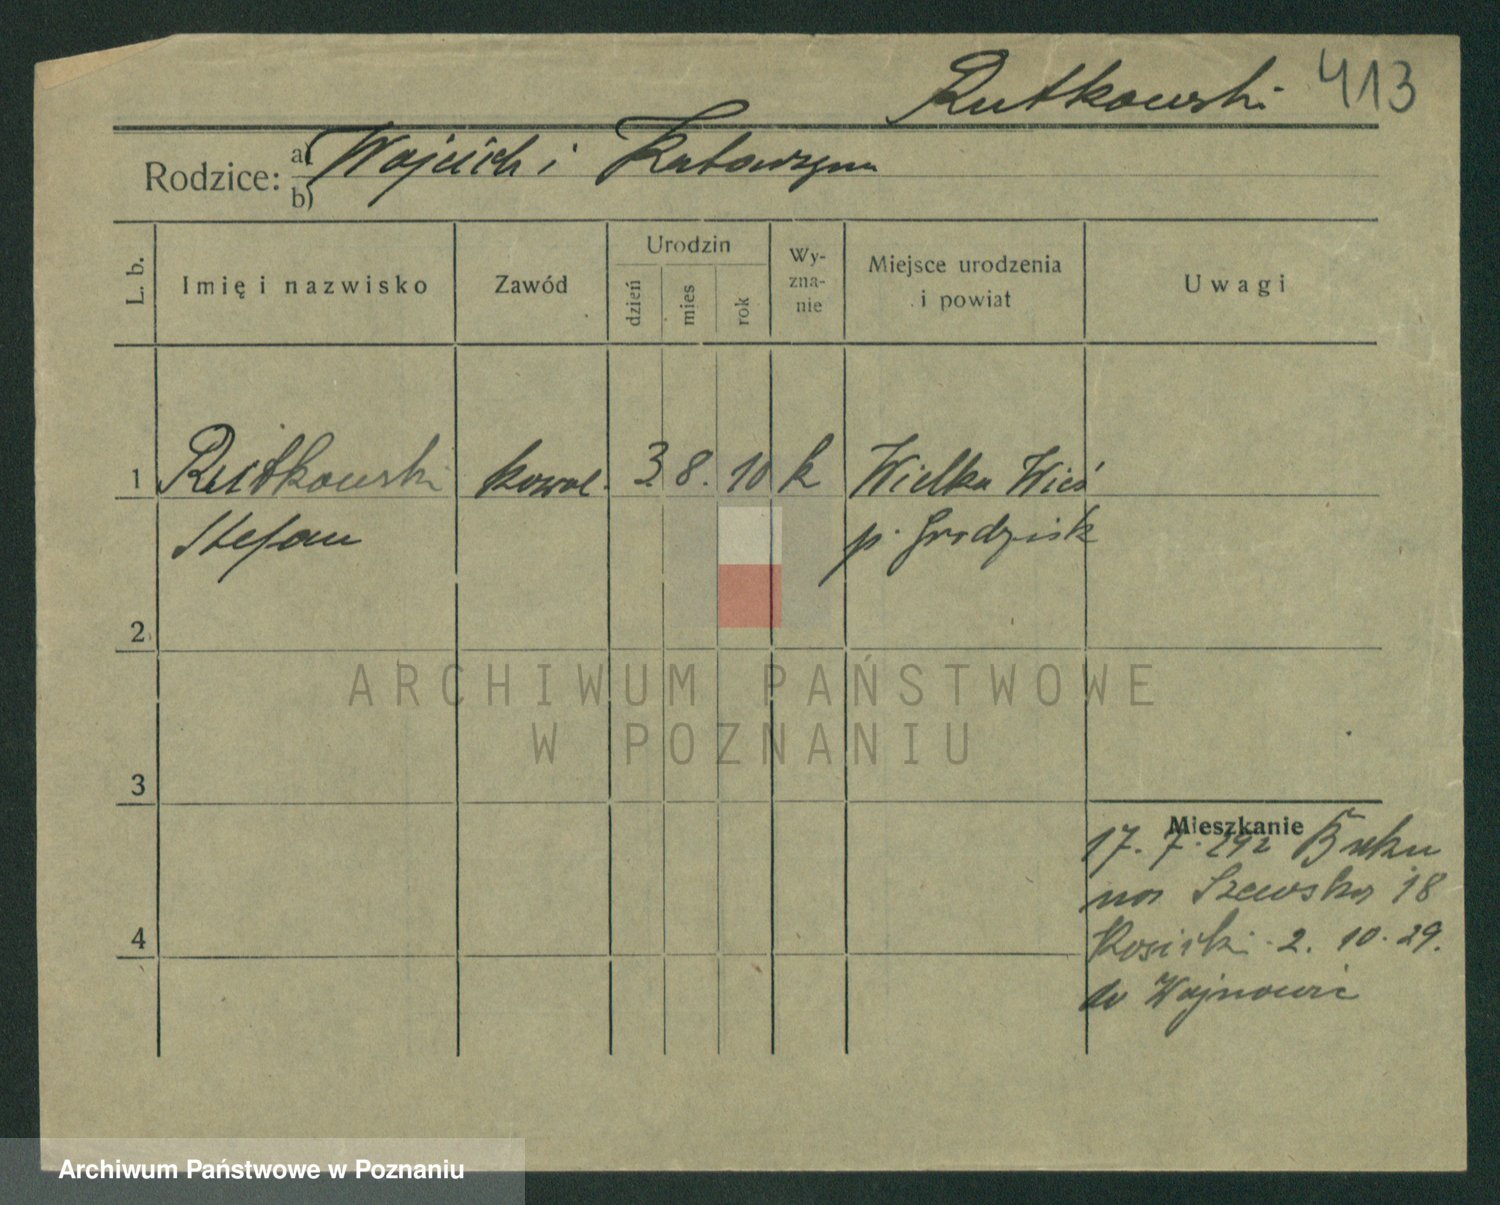 Rutkowski 413
Rodzice: a) Wojciech i Katarzyna
b)
L. b.
Imię i nazwisko
Zawód
Urodzin
dzień
mies
rok
Wy-
zna-
nie
Miejsce urodzenia
i powiat
Uwagi
1 Rutkowski kowal. 3. 8. 10 k Wielka Wieś
Stefan p. Grodzisk
2
3
4
Mieszkanie
17. 7. 29 z Buku
na Szewska 18
2. 10. 29.
do Wojnowic
ARCHIWUM PAŃSTWOWE
W POZNANIU
Archiwum Państwowe w Poznaniu